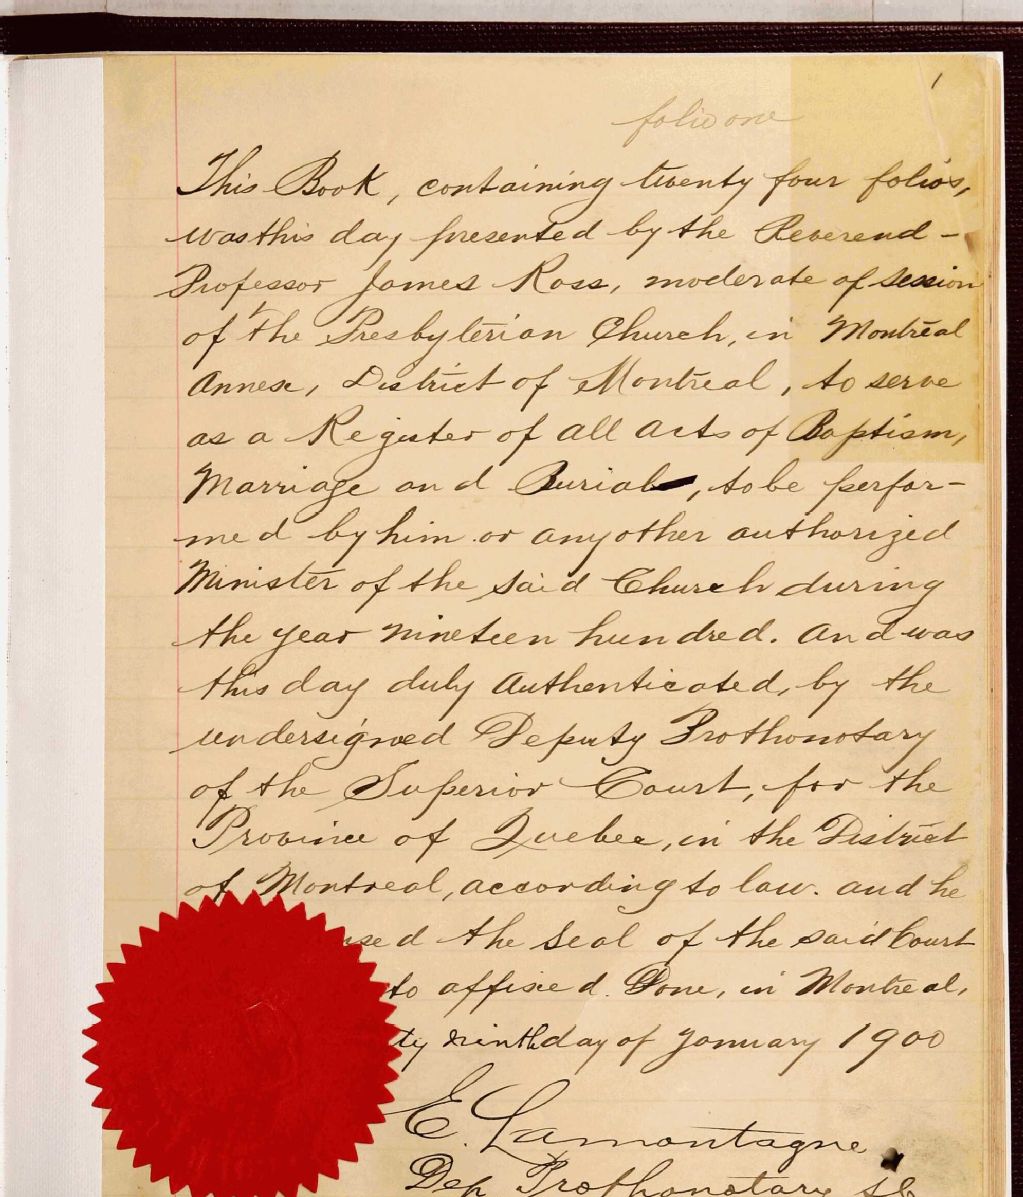 1
folio one
This Book, containing twenty four folios,
was this day presented by the Reverend -
Professor James Ross, moderate of session
of the Presbyterian Church, in Montreal
Annex, District of Montreal, to serve
as a Register of all acts of Baptism,
Marriage and Burial, to be perfor-
med by him or any other authorized
Minister of the said Church during
the year nineteen hundred. And was
this day duly Authenticated, by the
undersigned Deputy Prothonotary
of the Superior Court, for the
Province of Quebec, in the District
of Montreal, according to law. and he
used the Seal of the said Court
to affixed. Done, in Montreal,
ty ninth day of January 1900
E. Lamontagne
Dep Prothonotary